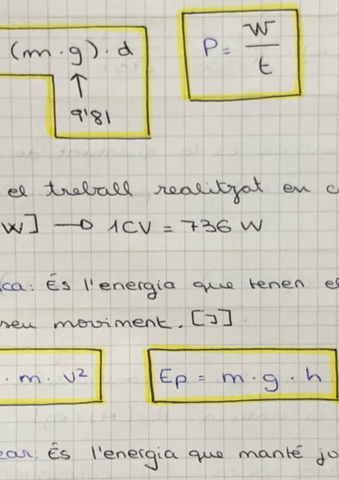 (m·g)·d
P = W/t
↑
9'81
el treball realitzat en
W] → 1CV = 736 W
ca: És l'energia que tenen
seu moviment. [J]
· m · v²
Ep = m · g · h
ear: És l'energia que manté